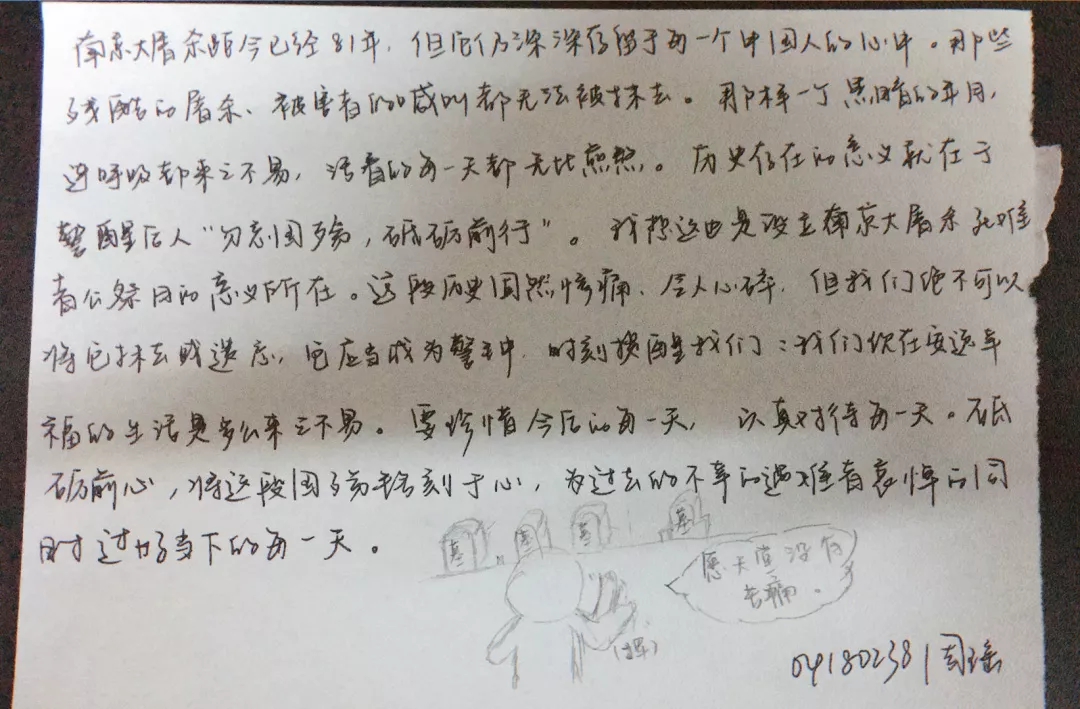 南京大屠杀距今已经81年，但它仍深深存留于每一个中国人的心中。那些
残酷的屠杀、被害者的喊叫都无法被抹去。那样一个黑暗的年月，
连呼吸都来之不易，活着的每一天都无比煎熬。历史存在的意义就在于
警醒后人“勿忘国殇，砥砺前行”。我想这也是设立南京大屠杀死难
者公祭日的意义所在。这段历史固然惨痛、令人心碎，但我们绝不可以
将它抹去或遗忘，它应当成为警钟，时刻提醒我们：我们现在安逸幸
福的生活是多么来之不易。要珍惜今后的每一天，认真对待每一天。砥
砺前心，将这段国殇铭刻于心，为过去的不幸的遇难者哀悼的同
时过好当下的每一天。
墓 墓 墓 墓
愿天堂没有
苦痛。
(挥)
04180238 周瑶